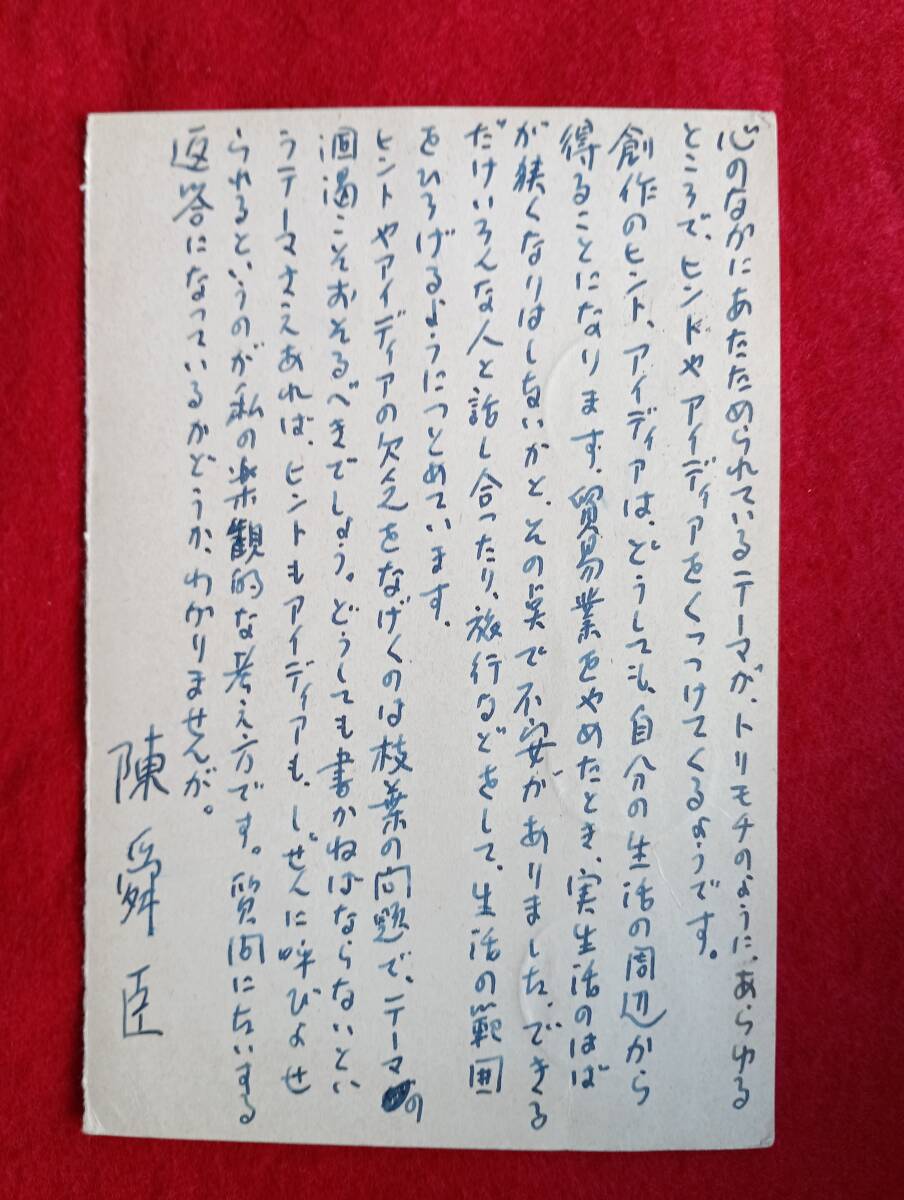 心のなかにあたためられているテーマが、トリモチのように、あらゆる
ところで、ヒントやアイディアをくっつけてくるようです。
創作のヒント、アイディアは、どうしても、自分の生活の周辺から
得ることになります。貿易業をやめたとき、実生活のはば
が狭くなりはしないかと、その点で不安がありました。できる
だけいろんな人と話し合ったり、旅行などをして、生活の範囲
をひろげるようにつとめています。
ヒントやアイディアの欠乏をなげくのは枝葉の問題で、テーマの
涸渇こそおそるべきでしょう。どうしても書かねばならないとい
うテーマさえあれば、ヒントもアイディアも、しぜんに呼びよせ
られるというのが私の楽観的な考え方です。質問にたいする
返答になっているかどうか、わかりませんが。
陳舜臣